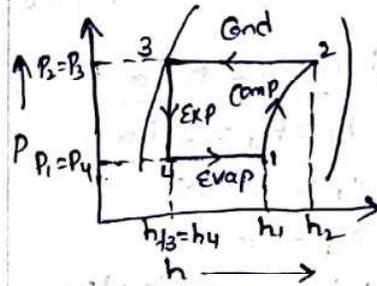 Cond
3
2
↑ P₂=P₃
Comp
Exp
P
P₁=P₄
4
1
Evap
hf3=h4
h₁
h₂
h →